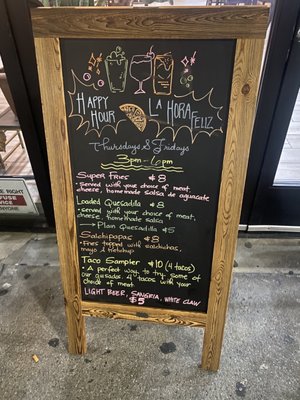 Happy
Hour
La Hora
Feliz
Thursdays & Fridays
3pm-6pm
Super Fries $8
• Served with your choice of meat
cheese, homemade salsa de aguacate
Loaded Quesadilla $8
• Served with your choice of meat,
cheese, homemade salsa
→ Plain Quesadilla $5
Salchipapas $8
• Fries topped with salchichas,
mayo & ketchup
Taco Sampler $10 (4 tacos)
• A perfect way to try some of
our guisados. 4 tacos with your
choice of meat.
Light Beer, Sangria, White Claw
$5